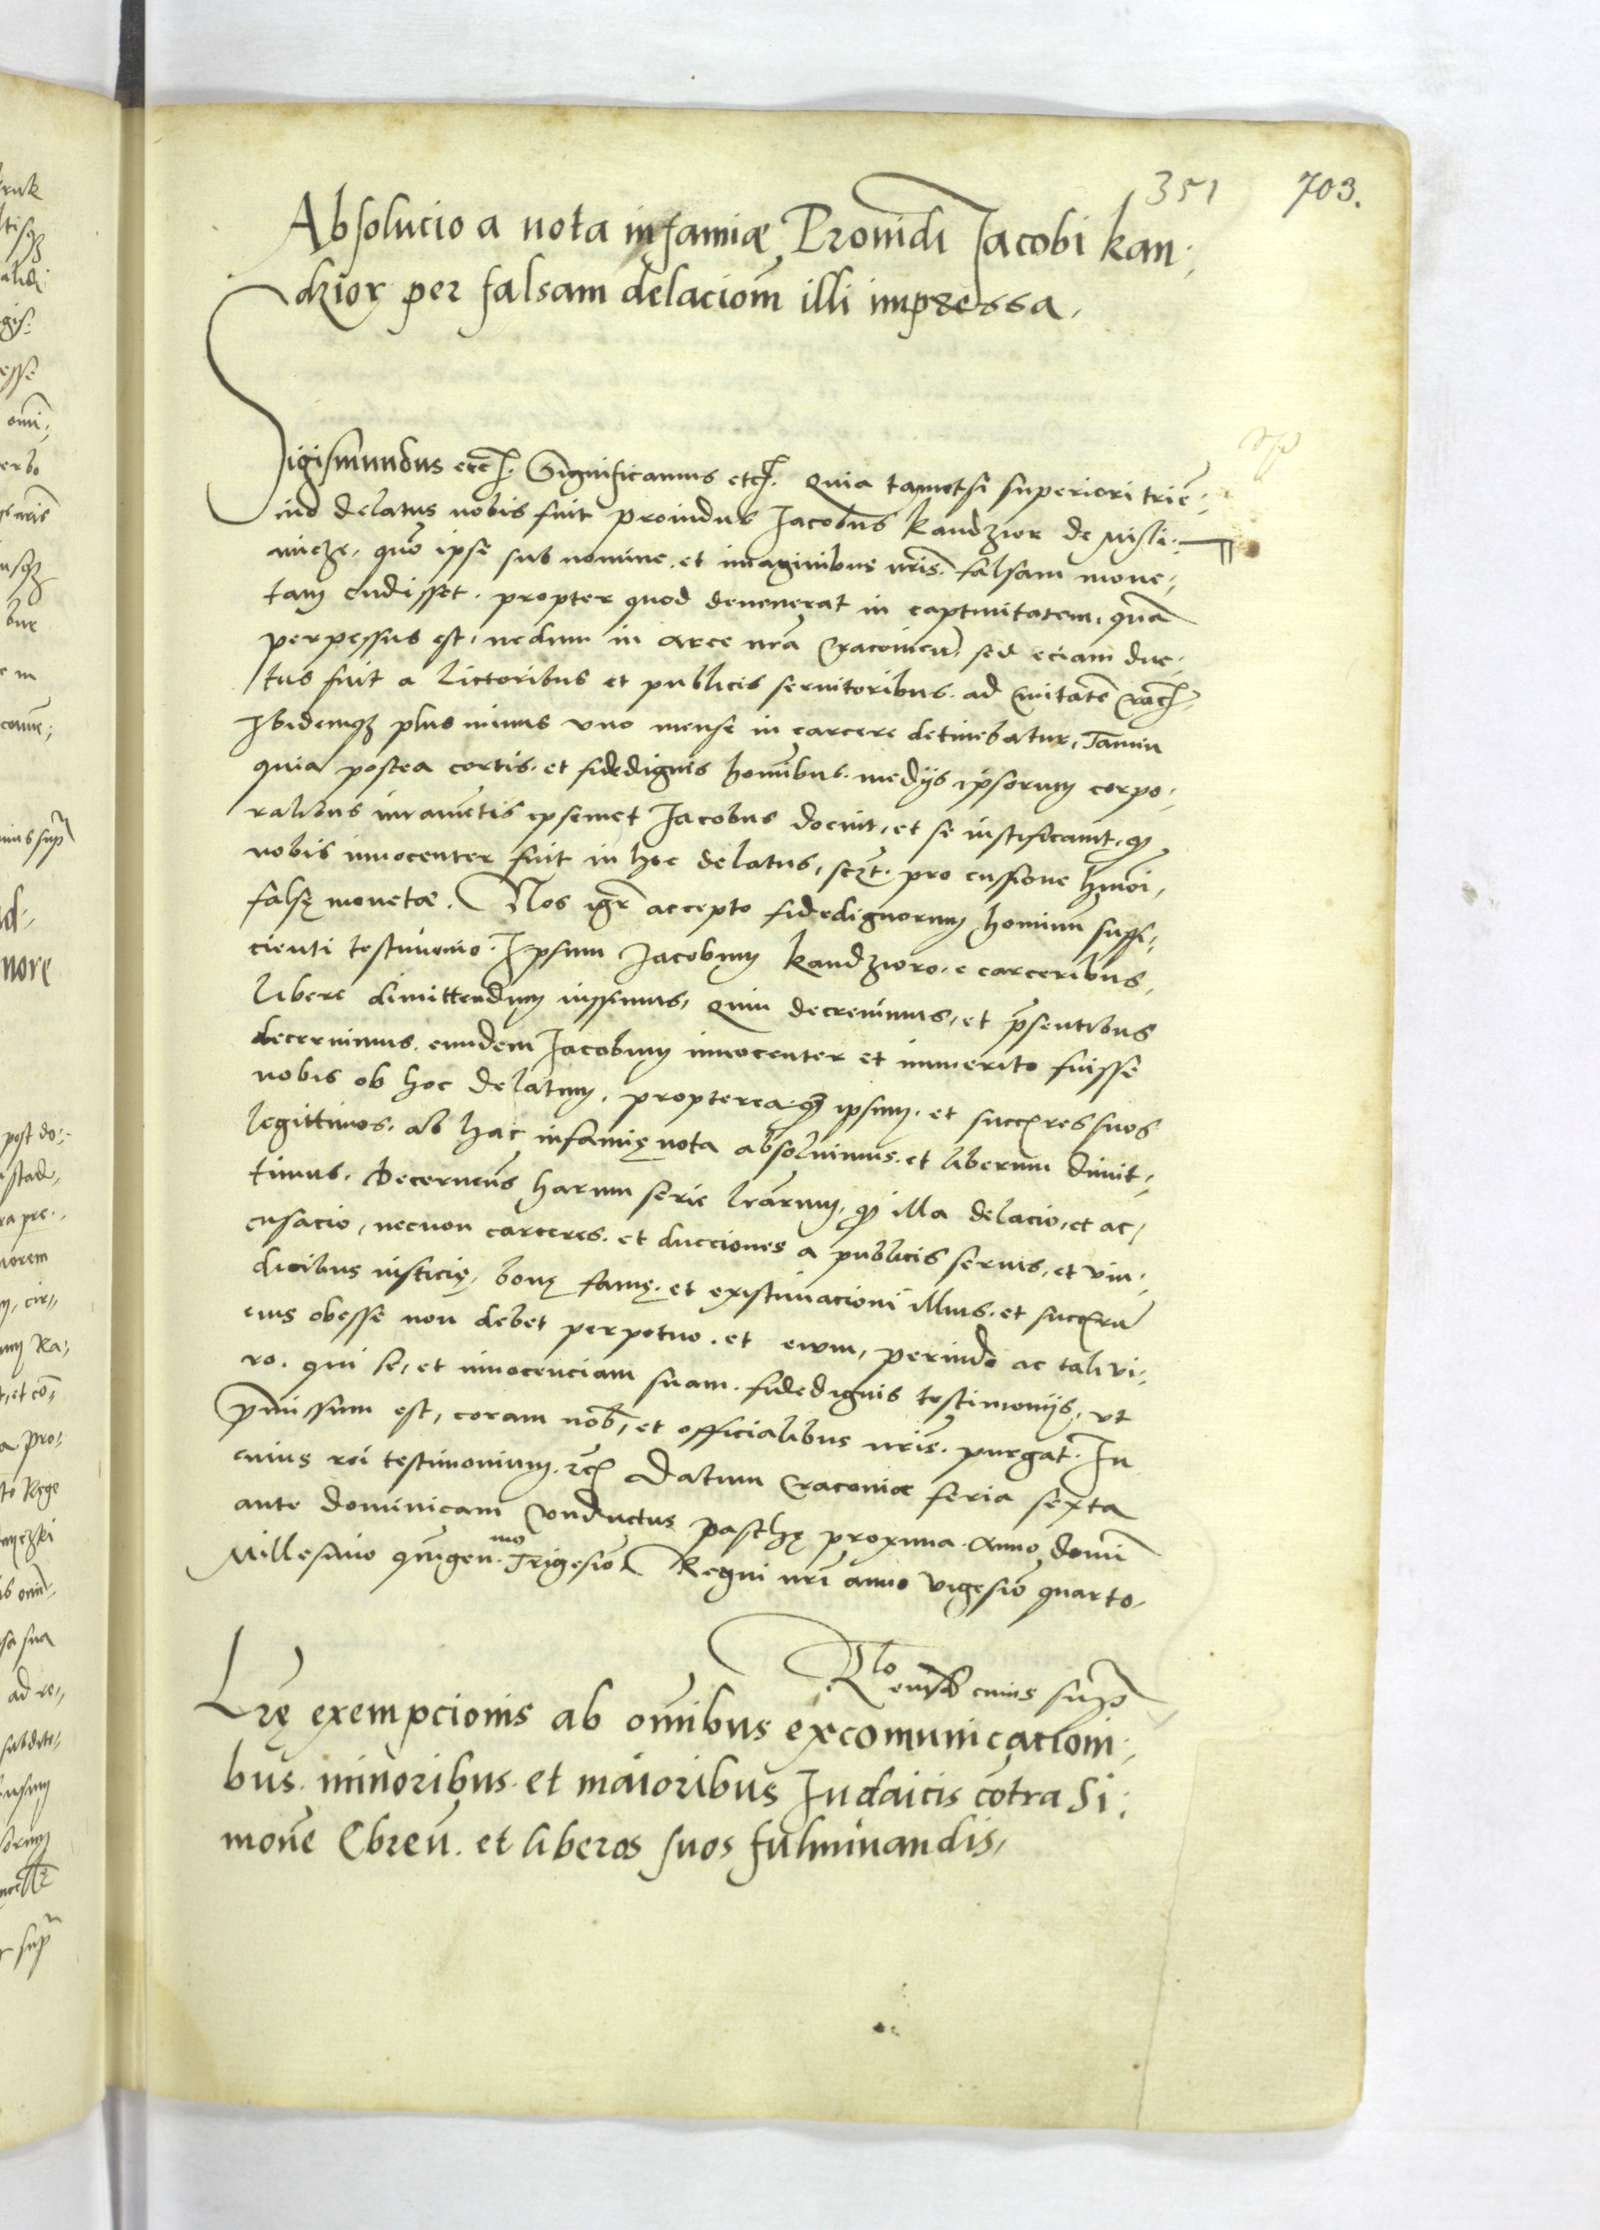 351 703.
Absolucio a nota infamiæ Prouidi Jacobi Kan:
dzior per falsam delacionē illi impressa.
Sigismundus etc. Significamus etc. Quia tametsi superiori triē:
nio delatus nobis fuit prouidus Jacobus Kandzior de Misli:
micze, quō ipse sub nomine et imaginibus nr̄is falsam mone:
tam cudisset. propter quod deuenerat in captiuitatem, quā
perpessus est, nedum in arce nr̄a Cracouien̄. sed eciam duc:
tus fuit a lictoribus et publicis seruitoribus ad Ciuitatē Crac.
Ibidemqȝ plus minus vno mense in carcere detinebatur, Tamen
quia postea certis et fidedignis homībus medijs ipsorum corpo:
ralibus iuramētis ipsemet Jacobus docuit, et se iustificauit, qꝫ
nobis innocenter fuit in hoc delatus, sczt. pro cussione hmōi,
falsę monetæ. Nos igr̄ accepto fidedignorum hominum suffi:
cienti testimonio. Ipsum Jacobum Kandzioro e carceribus
libere dimittendum iussimus, Quin decreuimus, et p̄sentibus
decernimus eundem Jacobum innocenter et immerito fuisse
nobis ob hoc delatum, proptereaqȝ ipsum et succ̄res suos
legittimos. ab hac infamię nota absoluimus et liberum dimit:
timus. Decernen̄s harum serie lr̄arum, qꝫ illa delacio, et ac:
cusacio, necnon carceres et ducciones a publicis seruis, et vin:
dicibus iusticię, bonę famę et existimacioni illius et succ̄rū
eius obesse non debet perpetuo et ewm, perinde ac tali vi:
ro qui se, et innocenciam suam fidedignis testimonijs, vt
p̄missum est, coram nob̄, et officialibus nr̄is purgat. In
cuius rei testimonium etc. Datum Cracoviæ feria sexta
ante dominicam Conductus paschę proxima Anno domī
Millesimo quingen.mo Trigesimo Regni nr̄i anno vigesiō quarto.
Rlo eiusd cuius supra
Lr̄ę exempcionis ab om̄ibus excomunicationi:
bus minoribus et maioribus Judaicis cōtra Si:
monē Ebreū et liberos suos fulminandis,